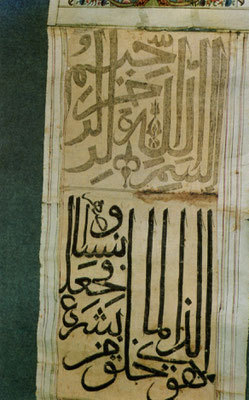 بسم الله الرحمن الرحيم
وهو الذي خلق من الماء بشرا فجعله نسبا و